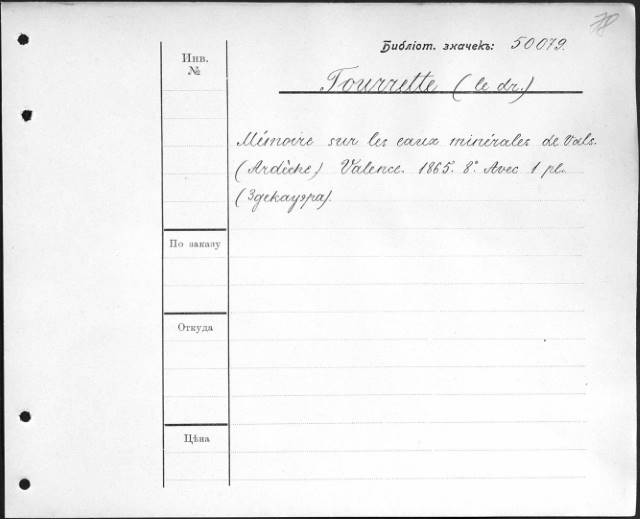 78
Библіот. значекъ: 50079.
Инв.
№
Tourrette (le dr.)
Mémoire sur les eaux minérales de Vals.
(Ardèche) Valence. 1865. 8°. Avec 1 pl.
(Здекауэра).
По заказу
Откуда
Цѣна